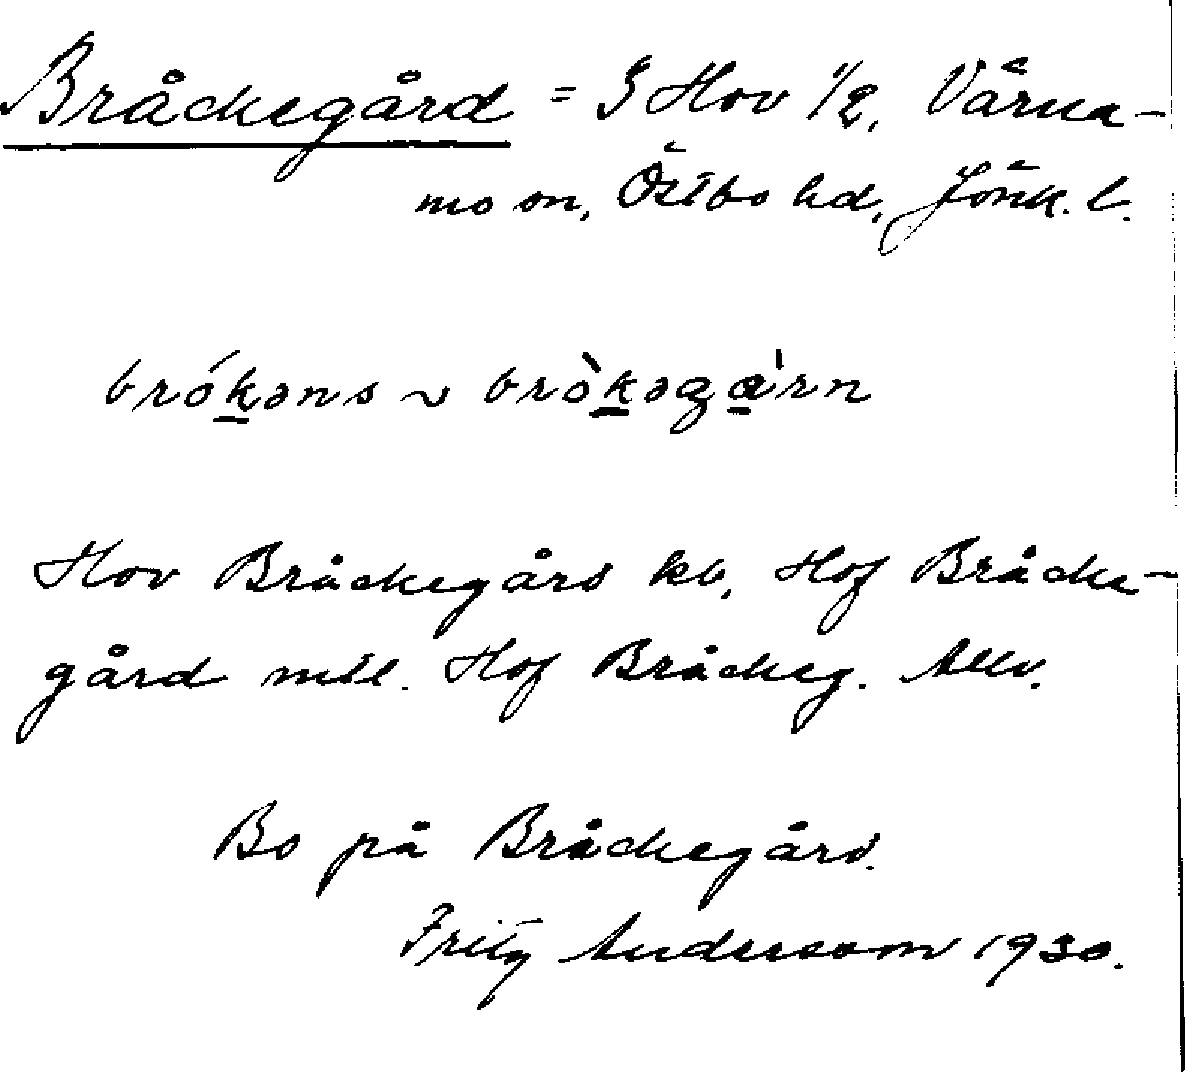 Bråckegård = S Hov 1/2, Värna-
mo sn, Östbo hd, Jönk. l.
brókəns ~ bròkəgàrn
Hov Bråckegårs kb, Hof Bråcke-
gård mtl. Hof Bråckeg. Allv.
Bo på Bråckegård.
Fritz Andersson 1930.